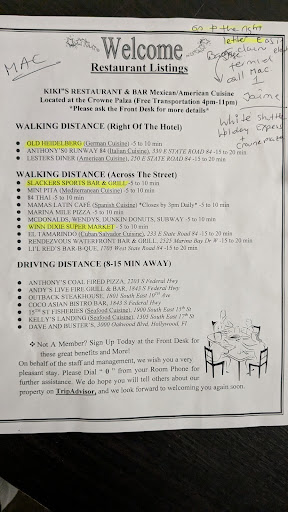 MAC
Go to the right
letter East
Baggage claim
terminal
call Mac
1
+ Jaime
White Shuttle
Holiday Express
Crowne Plaza
Welcome
Restaurant Listings
KIKI"S RESTAURANT & BAR Mexican/American Cuisine
Located at the Crowne Palza (Free Transportation 4pm-11pm)
*Please ask the Front Desk for more details*
WALKING DISTANCE (Right Of The Hotel)
OLD HEIDELBERG (German Cuisine) -5 to 10 min
ANTHONY'S! RUNWAY 84 (Italian Cuisine), 330 E STATE ROAD 84 -15 to 20 min
LESTERS DINER (American Cuisine), 250 E STATE ROAD 84 -15 to 20 min
WALKING DISTANCE (Across The Street)
SLACKERS SPORTS BAR & GRILL -5 to 10 min
MINI PITA (Mediterranean Cuisine) -5 to 10 min
84 THAI -5 to 10 min
MAMAS LATIN CAFÉ (Spanish Cuisine) *Closes by 3pm Daily* -5 to 10 min
MARINA MILE PIZZA -5 to 10 min
MCDONALDS, WENDYS, DUNKIN DONUTS, SUBWAY -5 to 10 min
WINN DIXIE SUPER MARKET -5 to 10 min
EL TAMARINDO (Cuban Salvador Cuisine), 233 E State Road 84 -15 to 20 min
RENDEZVOUS WATERFRONT BAR & GRILL, 2525 Marina Bay Dr W -15 to 20 min
LI'L RED'S BAR-B-QUE, 1785 West State Road 84 -15 to 20 min
DRIVING DISTANCE (8-15 MIN AWAY)
ANTHONY'S COAL FIRED PIZZA, 2203 S Federal Hwy
ANDY'S LIVE FIRE GRILL & BAR, 1843 S Federal Hwy
OUTBACK STEAKHOUSE, 1801 South East 10th Ave
COCO ASIAN BISTRO BAR, 1841 S Federal Hwy
15TH ST FISHERIES (Seafood Cuisine), 1900 South East 15th St
KELLY'S LANDING (Seafood Cuisine), 1305 South East 17th St
DAVE AND BUSTER'S, 3000 Oakwood Blvd. Hollywood, Fl
Not A Member? Sign Up Today at the Front Desk for
these great benefits and More!
On behalf of the staff and management, we wish you a very
pleasant stay. Please Dial " 0 " from your Room Phone for
further assistance. We do hope you will tell others about our
property on TripAdvisor, and we look forward to welcoming you again soon.